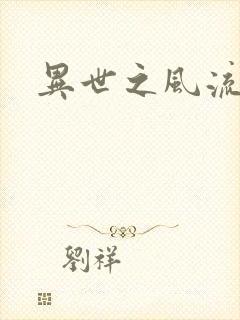 異世之風流
劉祥